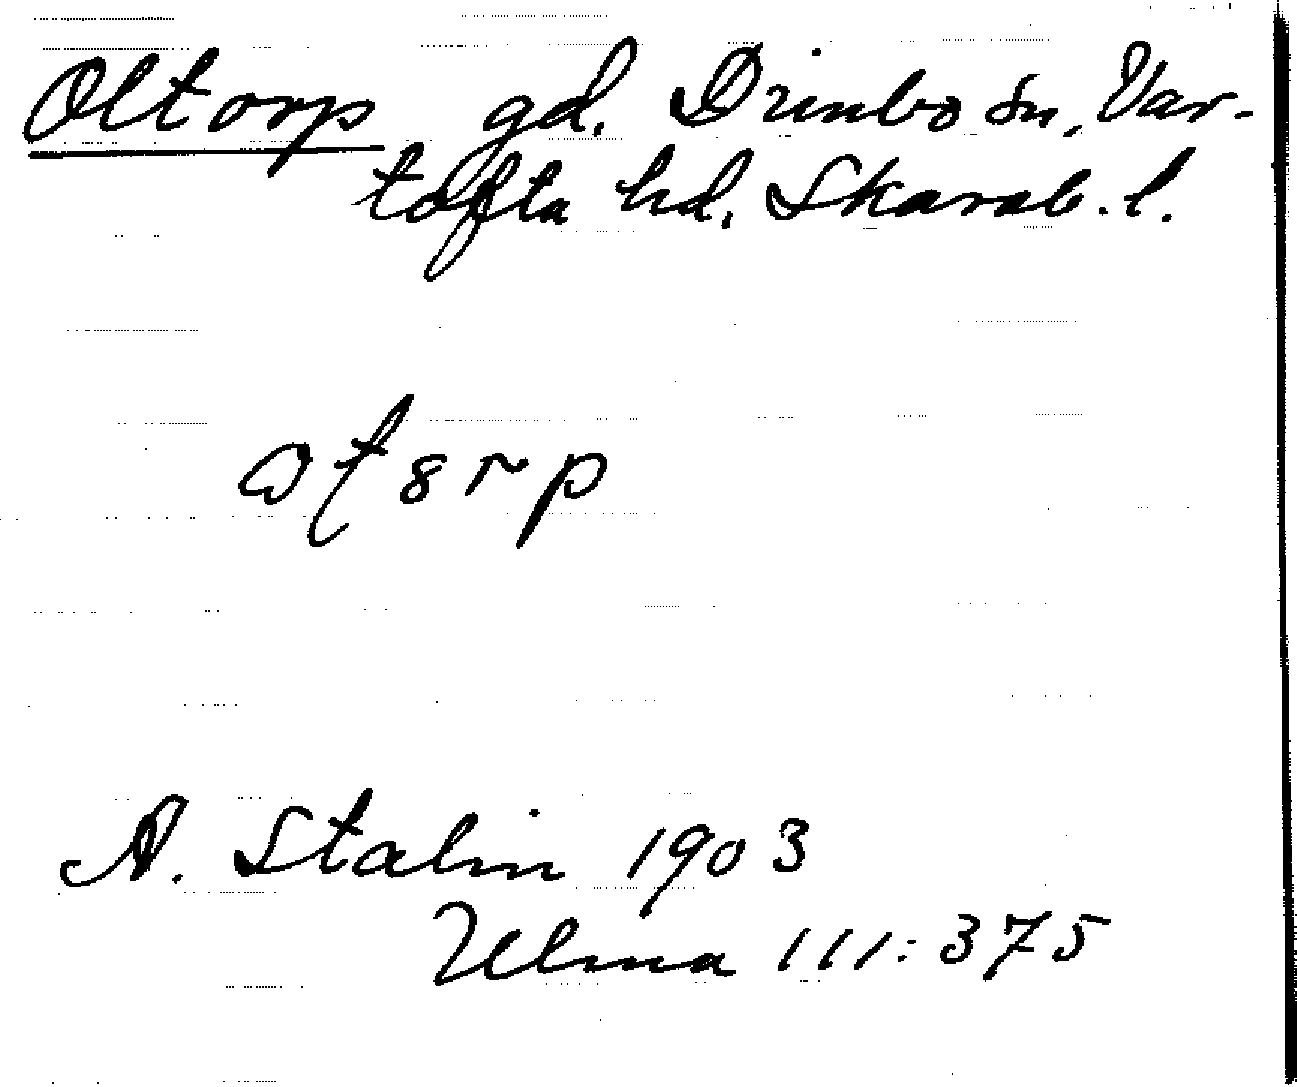 Oltorp gd. Dimbo sn, Var-
tofta hd. Skarab. l.
A. Stalin 1903
Ulma 111:375